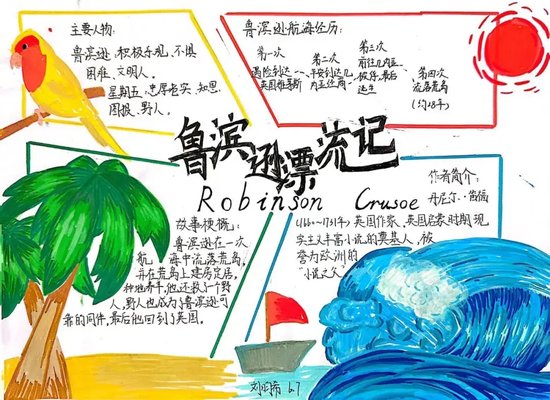 主要人物:
鲁滨逊:积极乐观,不惧
困难,文明人。
星期五:忠厚老实、知恩
图报、野人。
鲁滨逊航海经历:
第一次
遇险到达
英国雅茅斯
第二次
平安到达几
内亚经商
第三次
前往几内亚
被俘,最后
逃生
第四次
流落荒岛
(约28年)
鲁滨逊漂流记
Robinson Crusoe
故事梗概:
鲁滨逊在一次
航海中流落荒岛,
并在荒岛上建房定居,
种地养羊,他还救了个野
人,野人也成为鲁滨逊可
靠的同伴,最后他回到了英国。
作者简介:
丹尼尔·笛福
(1660~1731年)英国作家,英国启蒙时期现
实主义丰富小说的奠基人,被
誉为欧洲的
“小说之父”
6.7